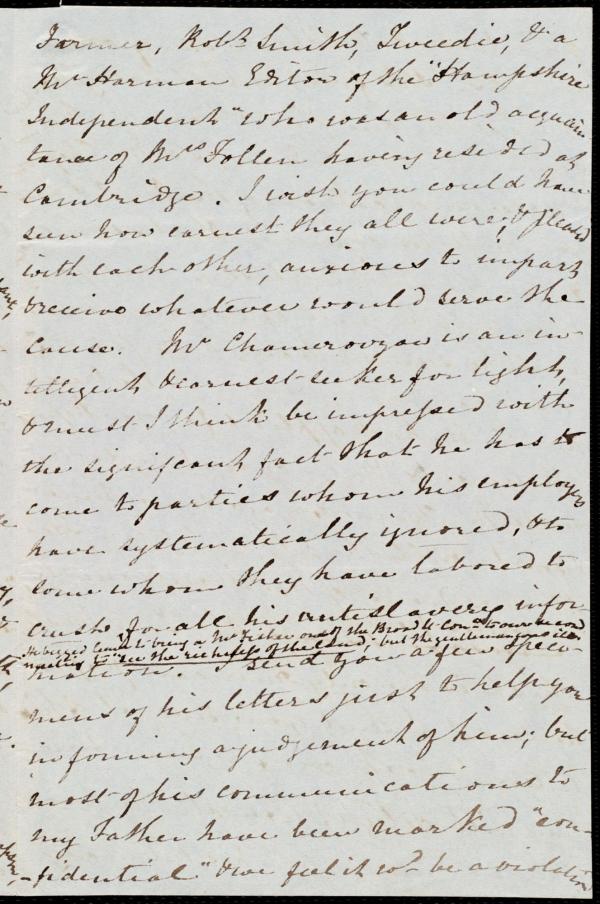 Farmer, Robt. Smith, Tweedie, & a
Mr Harman Editor of the "Hampshire
Independent" who was an old acquain-
tance of Mrs Follen having resided at
Cambridge. I wish you could have
seen how earnest they all were, & pleased
with each other, anxious to impart
& receive whatever would serve the
Cause. Mr Chamerovzow is an in-
telligent & earnest seeker for light,
& must I think be impressed with
the significant fact that he has to
come to parties whom his employers
have systematically ignored, & to
some whom they have labored to
crush, for all his antislavery infor-
He begged leave to bring a Mr Fisher one of the Broad St Comee to our second
meeting to "see the richness of the land", but the gentleman was ill
mation. I send you a few speci-
mens of his letters just to help you
in forming a judgement of him; but
most of his communications to
my Father have been marked "con-
fidential" & we feel it wd be a violation